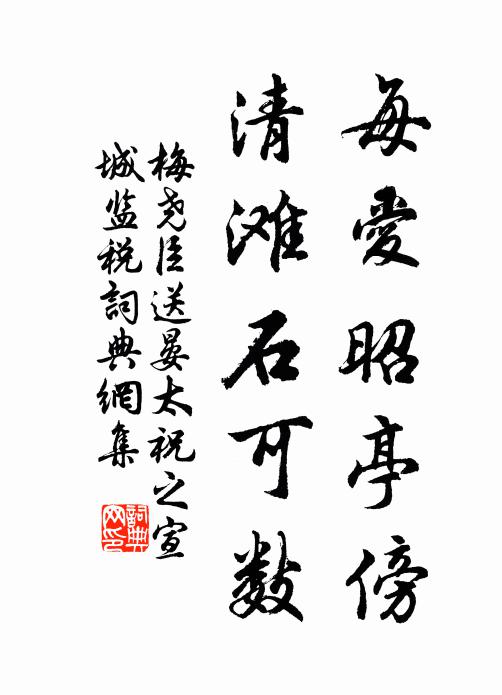 每愛昭亭傍
清滩石可数
梅尧臣送晏太祝之宣
城监税詞典網集
詞典
网印